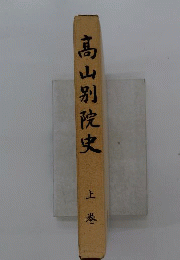 高山別院史
上巻